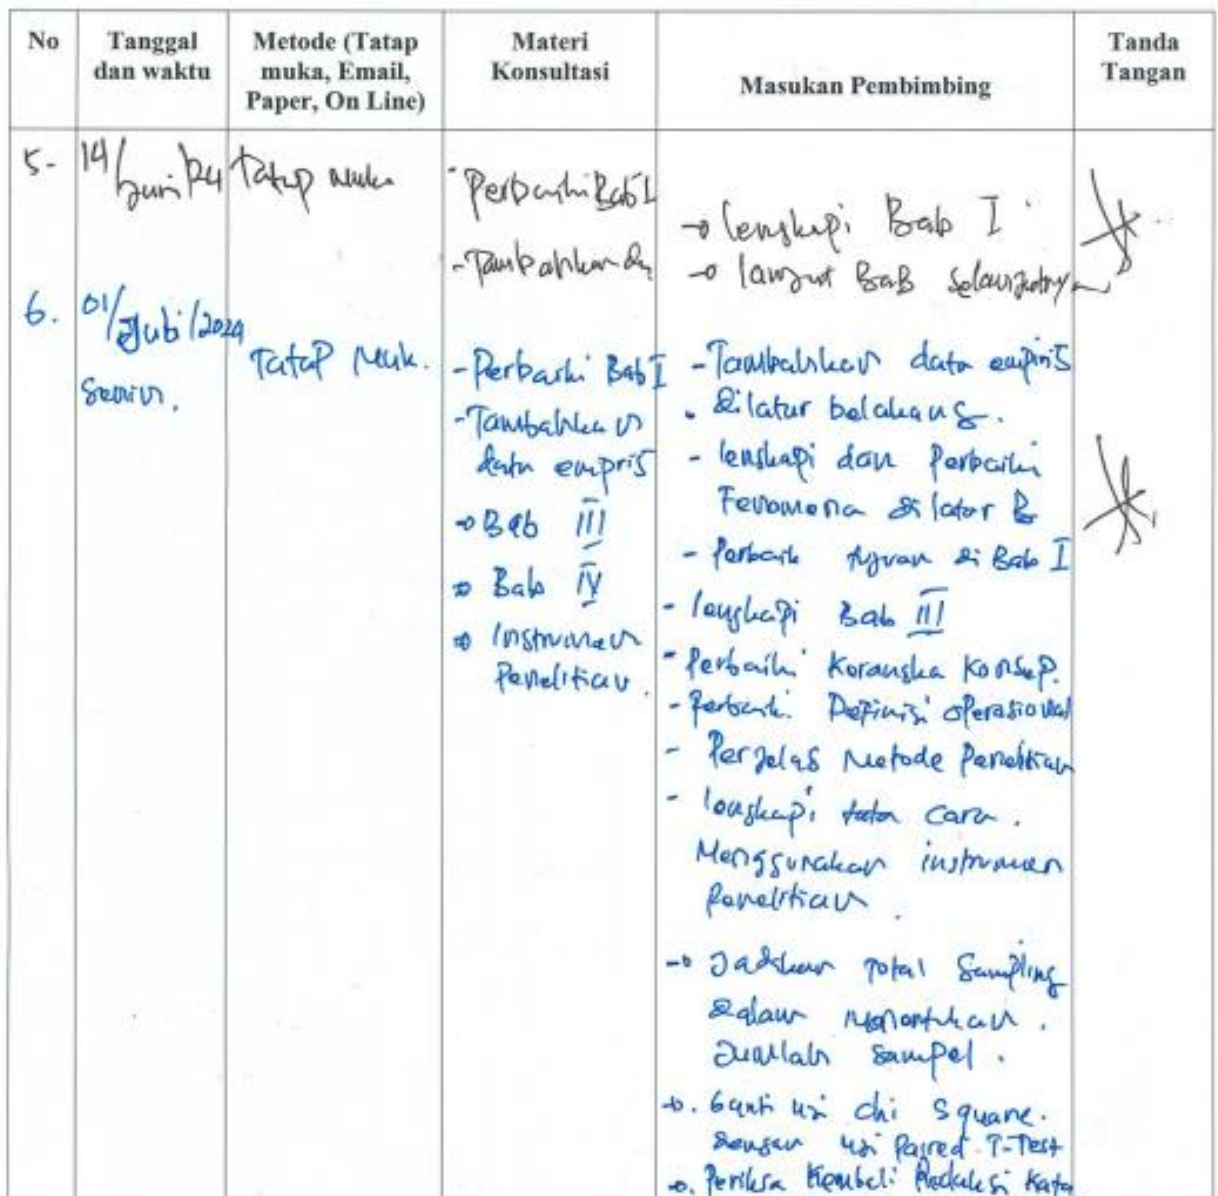 No Tanggal dan waktu Metode (Tatap muka, Email, Paper, On Line) Materi Konsultasi Masukan Pembimbing Tanda Tangan
5. 14/Juni/24 Tatap Muka
- Perbaiki Bab I
- Tambahkan
→ lengkapi Bab I
→ lanjut BaB selanjutnya
6. 01/Juli/2024
Senin.
Tatap Muk.
- Perbaiki Bab I
- Tambahkan
data empris
→ Bab III
→ Bab IV
→ Instrumen
Penelitian.
- Tambahkan data empiris
. dilatar belakang.
- lengkapi dan Perbaiki
Fenomena di latar B
- Perbaik tujuan di Bab I
- lengkapi Bab III
- Perbaiki Kerangka Konsep.
- Perbaiki. Definisi operasional
- Perjelas Metode Penelitian
- lengkapi tata cara.
Menggunakan instrumen
Penelitian.
→ Jadikan total Sampling
dalam menentukan.
Jumlah sampel.
→. Ganti uji chi square.
dengan uji Paired T-Test
→. Periksa Kembali Redaksi Kata